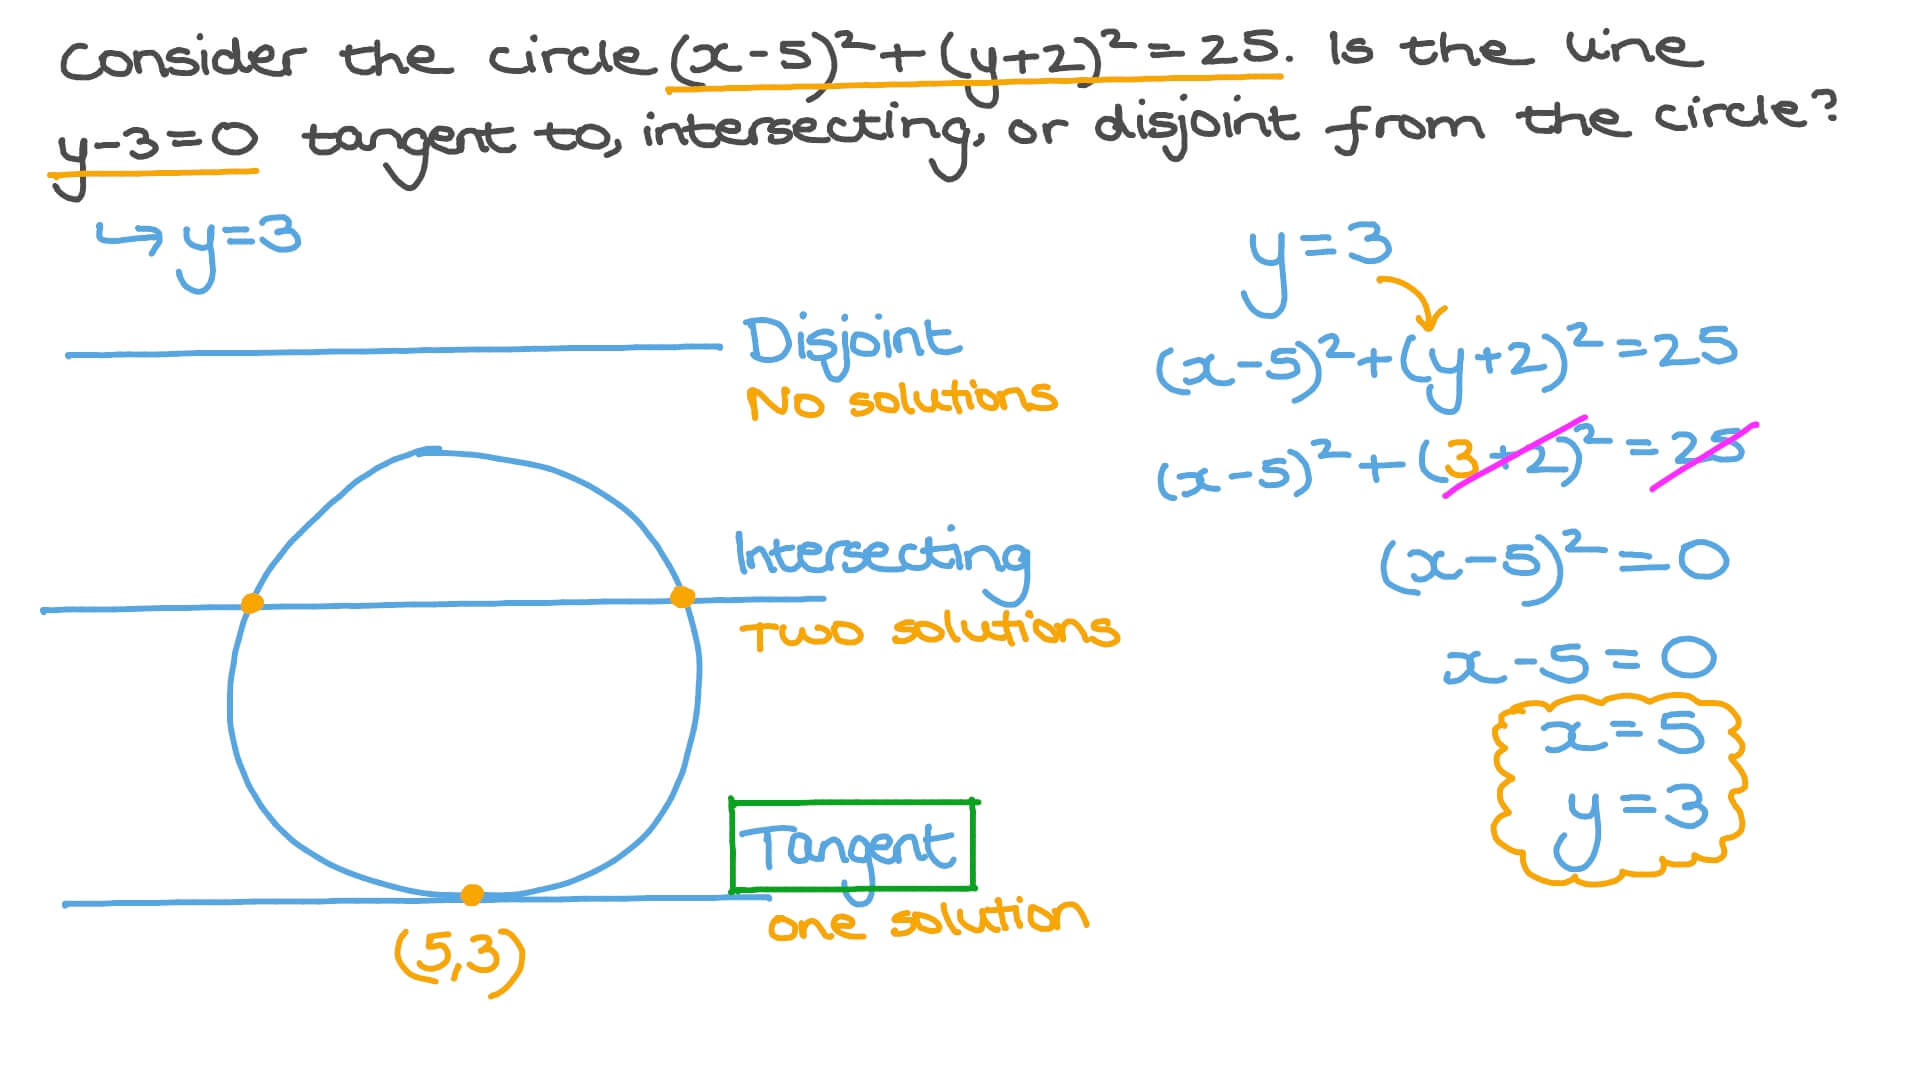 Consider the circle (x-5)²+(y+2)²=25. Is the line
y-3=0 tangent to, intersecting, or disjoint from the circle?
↪ y=3
Disjoint
No solutions
Intersecting
Two solutions
Tangent
one solution
(5,3)
y=3
(x-5)²+(y+2)²=25
(x-5)²+(3+2)²=25
(x-5)²=0
x-5=0
x=5
y=3